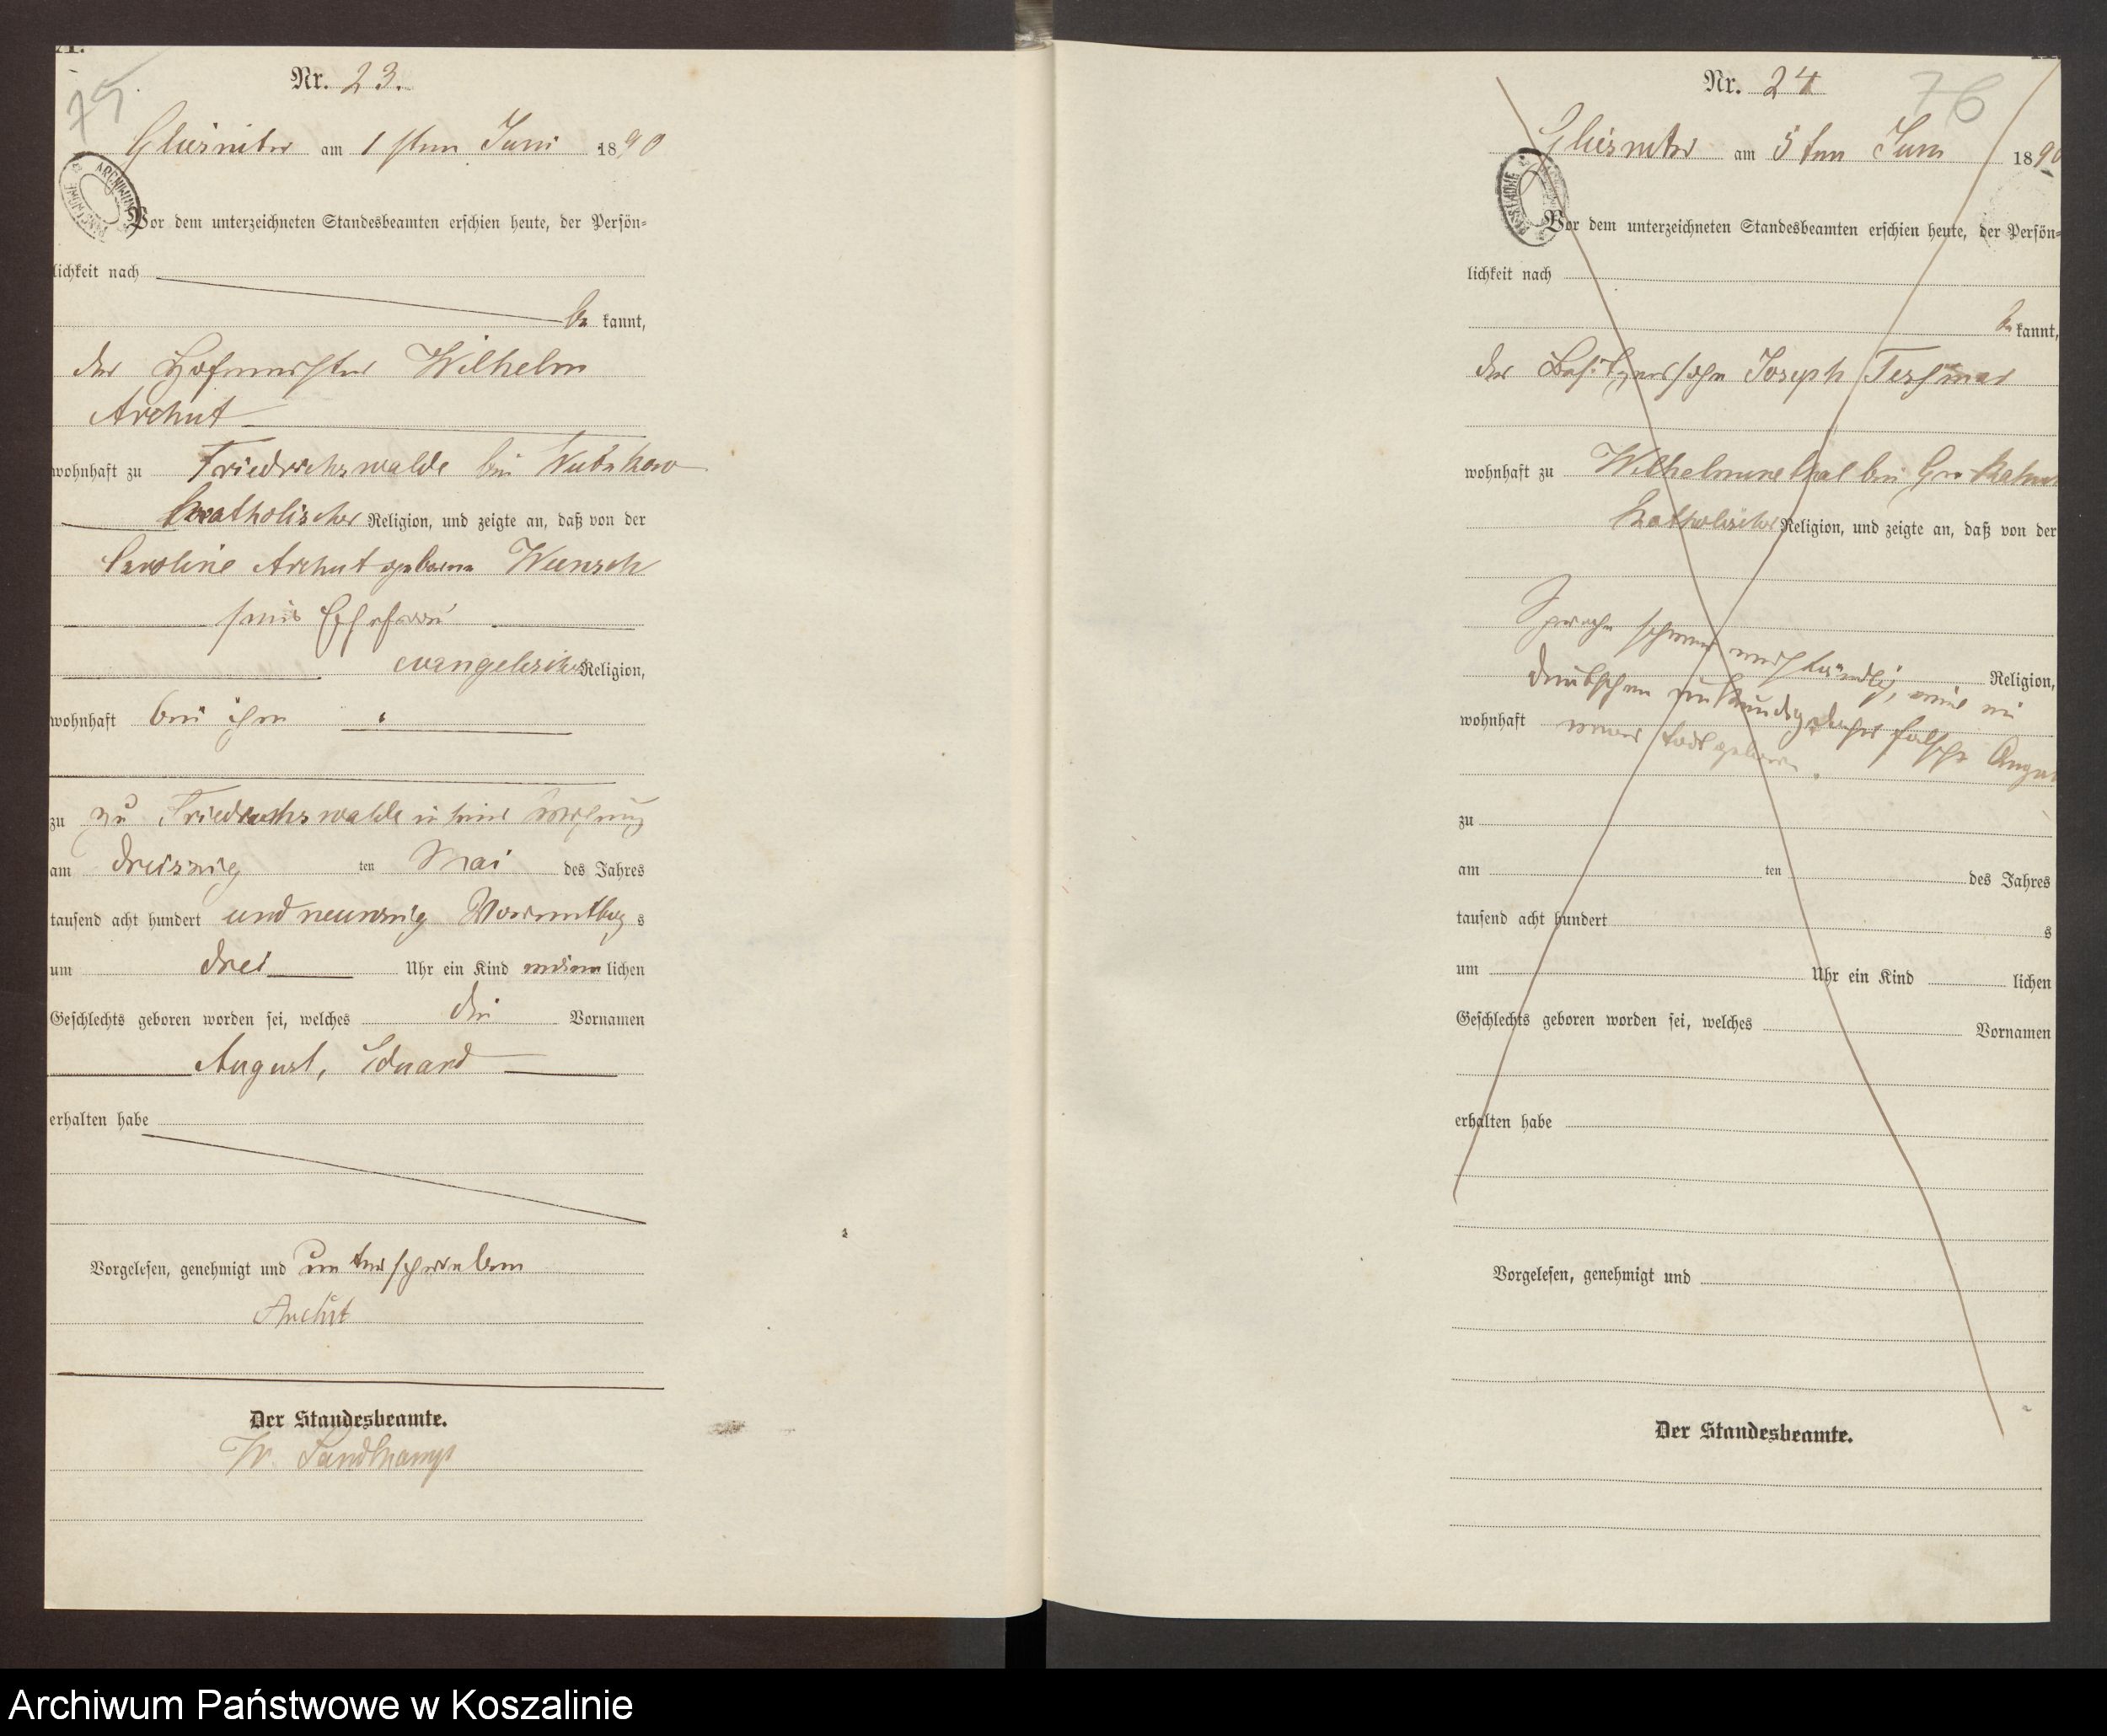 Nr. 23.
75
am 1 sten Juni 1890
ARCHIWUM PAŃSTWOWE
Vor dem unterzeichneten Standesbeamten erschien heute, der Persön=
lichkeit nach
be kannt,
der Hofmeister Wilhelm
Archut
wohnhaft zu Friedrichswalde bei
katholischer Religion, und zeigte an, daß von der
Caroline Archut geborene Wunsch
seine Ehefrau
evangelischer Religion,
wohnhaft bei ihm
zu zu Friedrichswalde in seiner Wohnung
am dreiszig ten Mai des Jahres
tausend acht hundert und neunzig Vormittag s
um drei Uhr ein Kind männ lichen
Geschlechts geboren worden sei, welches die Vornamen
August, Eduard
erhalten habe
Vorgelesen, genehmigt und unterschrieben
Archut
Der Standesbeamte.
Nr. 24
76
am 5 ten Juni 1890
Vor dem unterzeichneten Standesbeamten erschien heute, der Persön=
lichkeit nach
be kannt,
der Besitzerssohn Joseph
wohnhaft zu Wilhelminethal bei Gr.
katholischer Religion, und zeigte an, daß von der
Sprache schwer verständlich,
Religion,
deutschen unkundig daher falsche
wohnhaft
todtgeboren.
zu
am ten des Jahres
tausend acht hundert s
um Uhr ein Kind lichen
Geschlechts geboren worden sei, welches Vornamen
erhalten habe
Vorgelesen, genehmigt und
Der Standesbeamte.
Archiwum Państwowe w Koszalinie